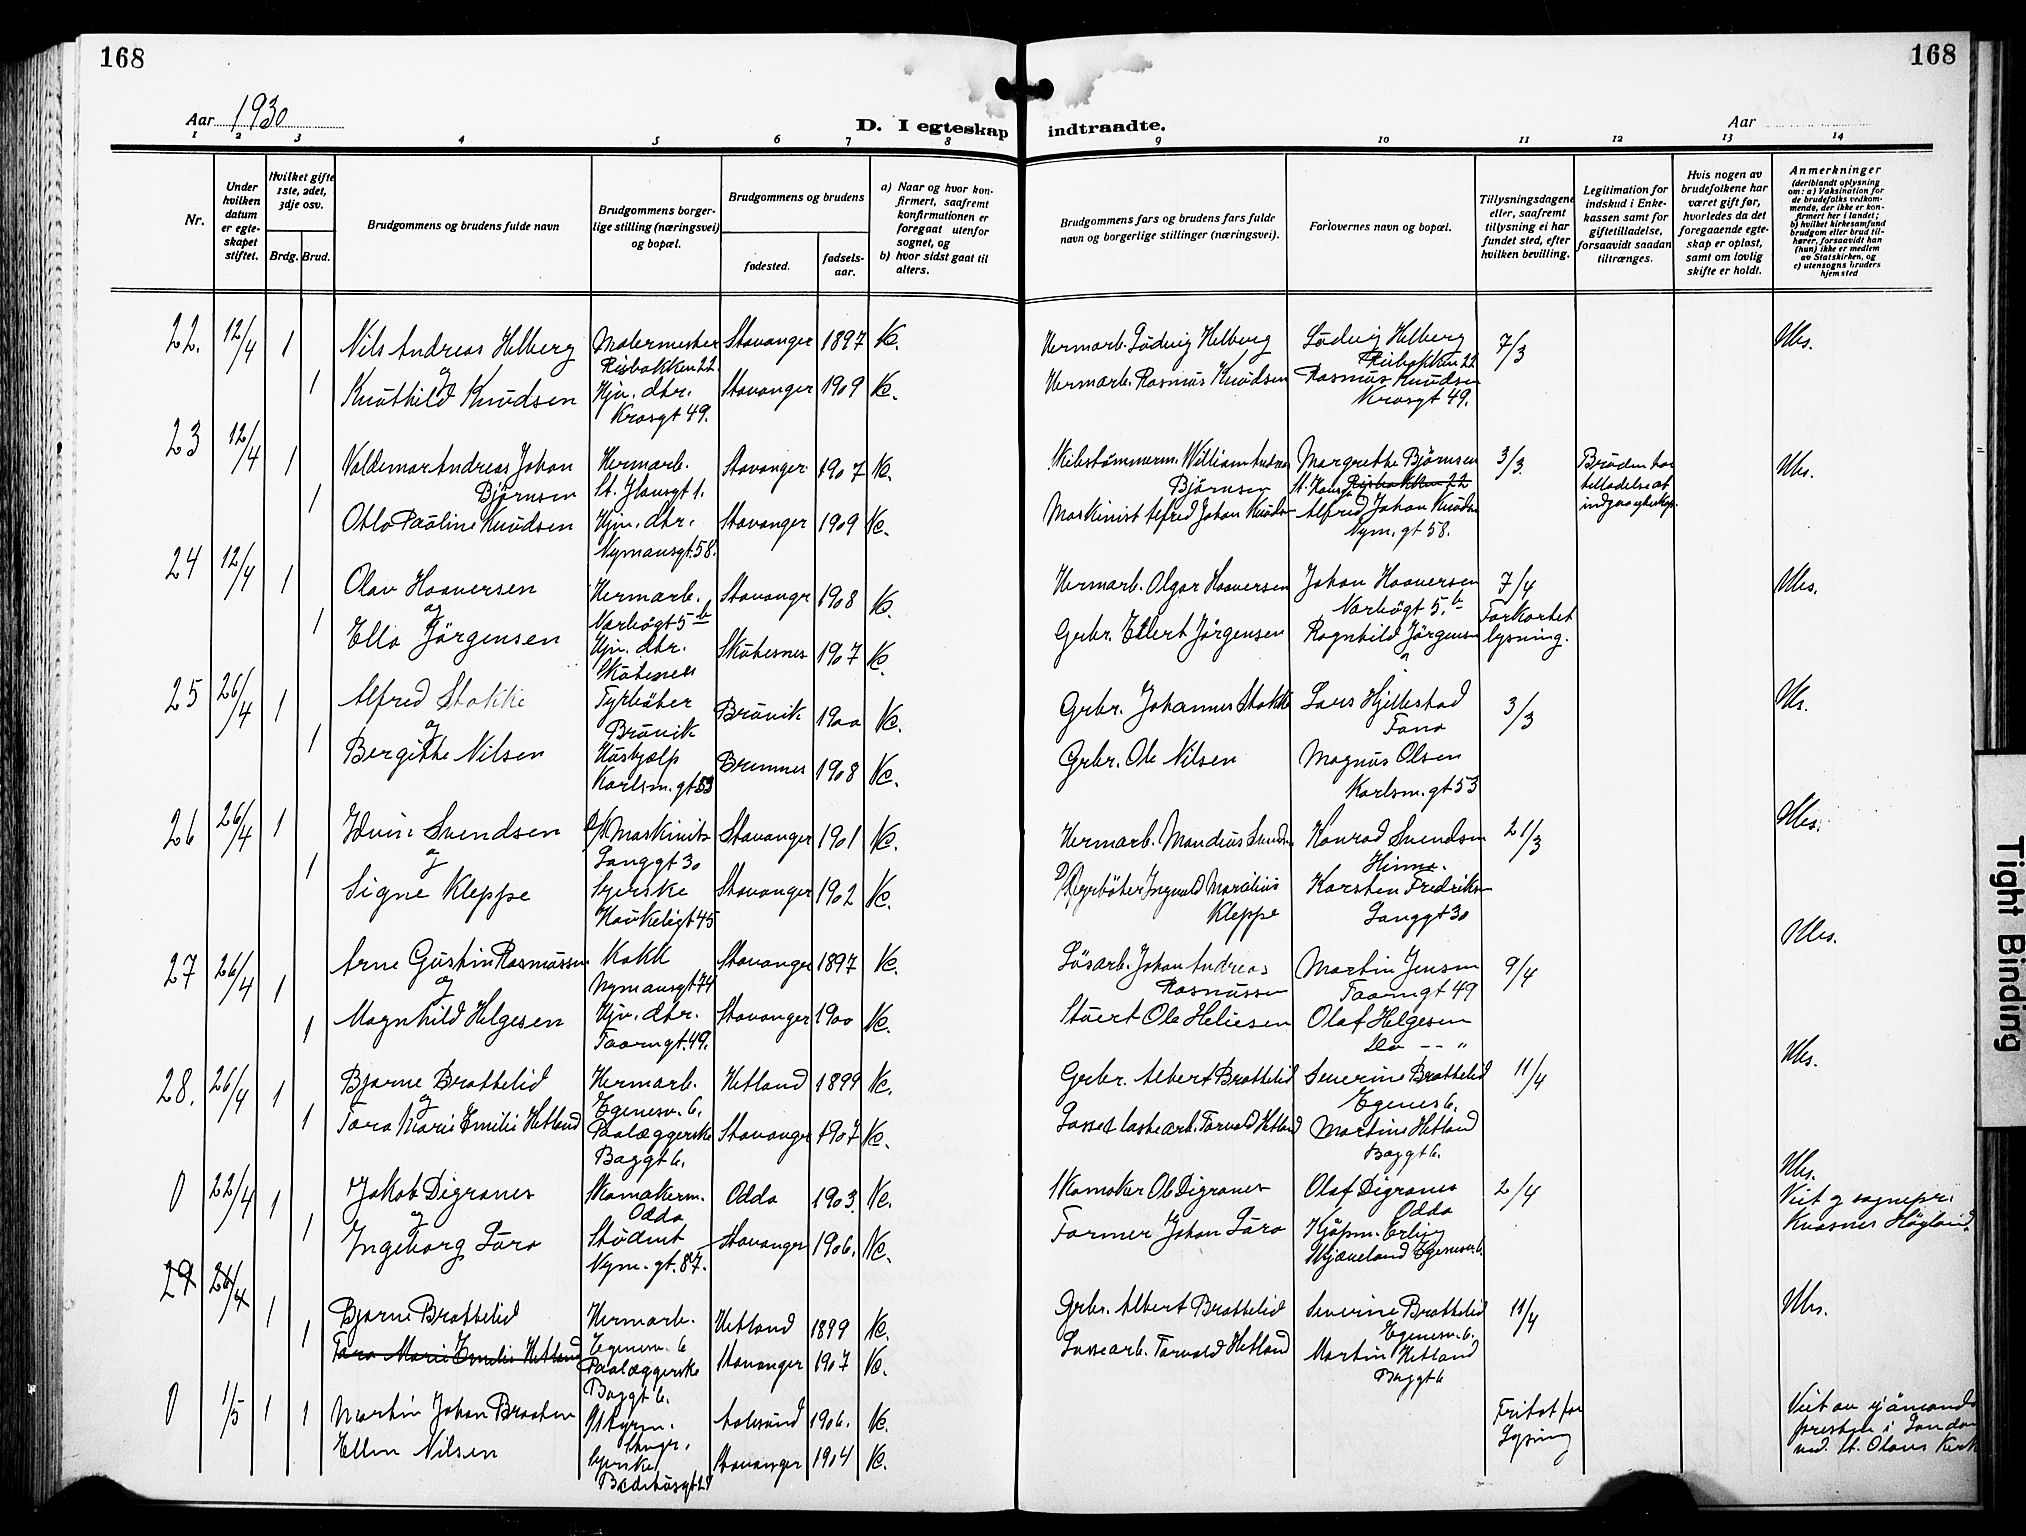 168
168
Aar 1930
D. I egteskap indtraadte.
Aar
1 2 3 4 5 6 7 8 9 10 11 12 13 14
Nr.
Under hvilken datum er egteskapet stiftet.
Hvilket gifte 1ste, 2det, 3dje osv.
Brdg. Brud.
Brudgommens og brudens fulde navn
Brudgommens borgerlige stilling (næringsvei) og bopæl.
Brudgommens og brudens
fødested.
fødselsaar.
a) Naar og hvor konfirmert, saafremt konfirmationen er foregaat utenfor sognet, og
b) hvor sidst gaat til alters.
Brudgommens fars og brudens fars fulde navn og borgerlige stillinger (næringsvei).
Forlovernes navn og bopæl.
Tillysningsdagene eller, saafremt tillysning ei har fundet sted, efter hvilken bevilling.
Legitimation for indskud i Enkekassen samt for giftetilladelse, forsaavidt saadan tiltrænges.
Hvis nogen av brudefolkene har været gift før, hvorledes da det foregaaende egteskap er opløst, samt om lovlig skifte er holdt.
Anmerkninger
(deriblandt oplysning om: a) Vaksination for de brudefolks vedkommende, der ikke er konfirmert her i landet; b) hvilket kirkesamfund brudgom eller brud tilhører, forsaavidt han (hun) ikke er medlem av Statskirken, og c) utensogns bruders hjemsted
22. 12/4 1 Nils Andreas Helberg Malermester Stavanger 1897 Hermarb. Ludvig Helberg Ludvig Helberg 7/3
og Risbakken 22. Risbakken 22
1 Knuthild Knudsen Hjv. dtr. Stavanger 1909 Hermarb. Rasmus Knudsen Rasmus Knudsen
Krosgt 49. Krosgt 49.
23 12/4 1 Valdemar Andreas Johan Hermarb. Stavanger 1907 Skibstømmerm. William Andreas Margrethe Bjørnsen 3/3. Bruden har
Bjørnsen St. Hansgt 1. Bjørnsen St. Hansg Risbakken 22 tilladelse at
1 Otlo Pauline Knudsen Hjv. dtr. Stavanger 1909 Maskinist Alfred Johan Knudsen Alfred Johan Knudsen indgaa egteskap.
Nymansgt. 58. Nym. gt 58.
24 12/4 1 Olav Haaversen Hermarb. Stavanger 1908 Hermarb. Olgar Haaversen Johan Haaversen 7/4
og Narbøgt 5 b Narbøgt 5. b Forkortet
1 Ella Jørgensen Hjv. dtr. Skutesnes 1907 Grbr. Ellert Jørgensen Ragnhild Jørgensen lysning.
Skutesnes
25 26/4 1 Alfred Stokke Fyrbøter Bruvik 1900 Grbr. Johannes Stokke Lars Hjellestad 3/3
og Bruvik Fana
1 Bergithe Nilsen Hushjælp Bremnes 1908 Grbr. Ole Nilsen Magnus Olsen
Karlsm. gt 53 Karlsm. gt 53
26 26/4 1 Edvin Svendsen Maskinist Stavanger 1901 Hermarb. Mandius Svendsen Konrad Svendsen 21/3
og Langgt 30 Hinna.
1 Signe Kleppe Syerske Stavanger 1902 Fyrbøter Ingvald Maralius Karsten Fredriksen
Haukeligt 45 Kleppe Langgt 30
27 26/4 1 Arne Gustin Rasmussen Kokk Stavanger 1897 Løsarb. Johan Andreas Martin Jensen 9/4
og Nymansgt 74 Rasmussen Taarngt 49
1 Magnhild Helgesen Hjv. dtr. Stavanger 1900 Stuert Ole Heliesen Olaf Helgesen
Taarngt. 49. Do -- "
28. 26/4 1 Bjarne Brattelid Hermarb. Hetland 1899 Grbr. Albert Brattelid Severine Brattelid 11/4
og Egenesv. 6. Egenes 6.
1 Tara Marie Emilie Hetland Paalæggerske Stavanger 1907 Losse & lastearb. Torvald Hetland Martine Hetland
Baggt 6. Baggt 6.
0 22/4 1 Jakob Digranes Skomakerm. Odda 1903. Skomaker Ole Digranes Olaf Digranes 2/4 Viet av sognepr.
og Odda Odda
1 Ingeborg Tara Student Stavanger 1906. Former Johan Tara Kjøpm. Erling
Nym. gt. 87. Skjæveland Egenesv. 6.
29 26/4 1 Bjarne Brattelid Hermarb. Hetland 1899 Grbr. Albert Brattelid Severine Brattelid 11/4
Egenesv. 6 Egenesv. 6.
1 Tara Marie Emilie Hetland Paalæggerske Stavanger 1907 Lossearb. Torvald Hetland Martin Hetland
Baggt 6. Baggt 6
0 1/5 1 1 Martin Johan Braaten Styrm. Aalesund 1906. Fritat for Viet av sjømands
Stvgr. Lysning presten i London
Ellen Nilsen Syerske Stavanger 1904 ved St. Olavs Kirk
Badehusgt 21
Tight Binding